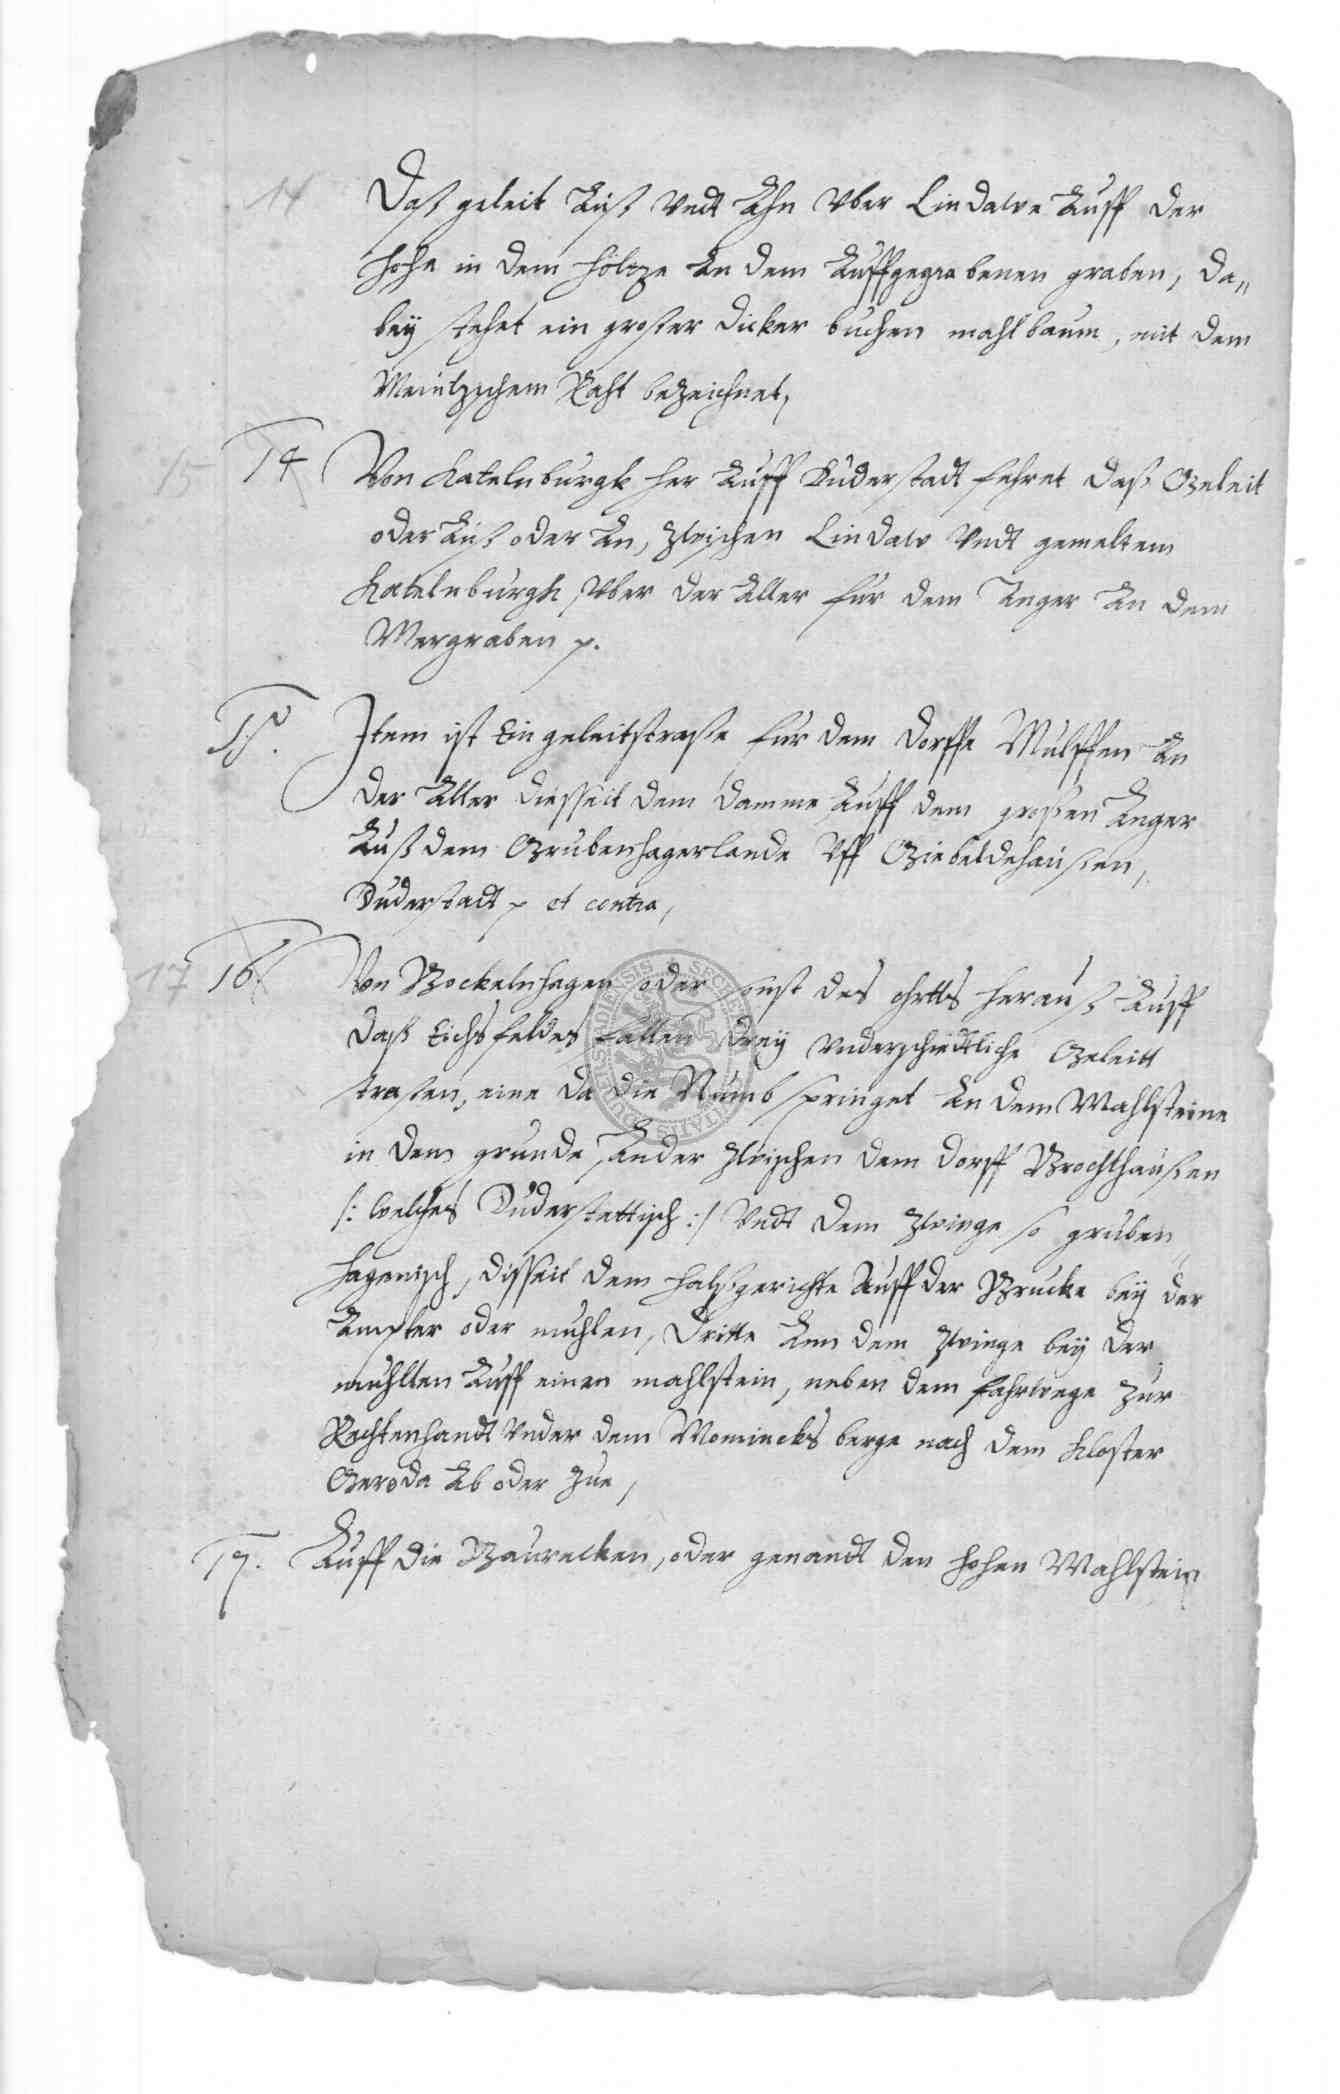 14 Daß geleit Auß Undt Ahn Uber Lindawe Auff der
höhe in dem höltze An dem Auffgegrabenen graben, da„
bey stehet ein großer dicker buchen mahlbaum, mit dem
Meintzschem Raht bezeichnet,
15 14 Von Katelnburgk her Auff Duderstadt fehret daß Geleit
oder Auß oder An, zwischen Lindaw Undt gemeltem
Katelnburgk, Uber der Aller für dem Anger An dem
Wergraben p.
15. Item ist Ein geleitstraße für dem dorffe Wulfften An
der Aller diesseit dem damme Auff dem großen Anger
Auß dem Grubenhagerlande Uff Giebeldehaußen,
Duderstadt p et contra,
17 16. Von Bockelnhagen oder sonst des ohrtts herauß Auff
daß Eichsfeldes fallen drey Underschiedtliche Geleitt
straßen, eine da die Rumb springet An dem Mahlsteine
in dem grunde, Ander zwischen dem dorff Brochthaußen
/: welches Duderstettisch :/ Undt dem Zwinge so gruben„
hagenisch, disseit dem halßgerichte Auff der Brucke bey der
oder muhlen, Dritte Ann dem Zwinge bey der
muhlten Auff einen mahlstein, neben dem fahrwege zur
Rechtenhandt Under dem Womincks berge nach dem Kloster
Geroda Ab oder zue,
17. Auff die oder genandt den hohen Mahlstein
SECRET